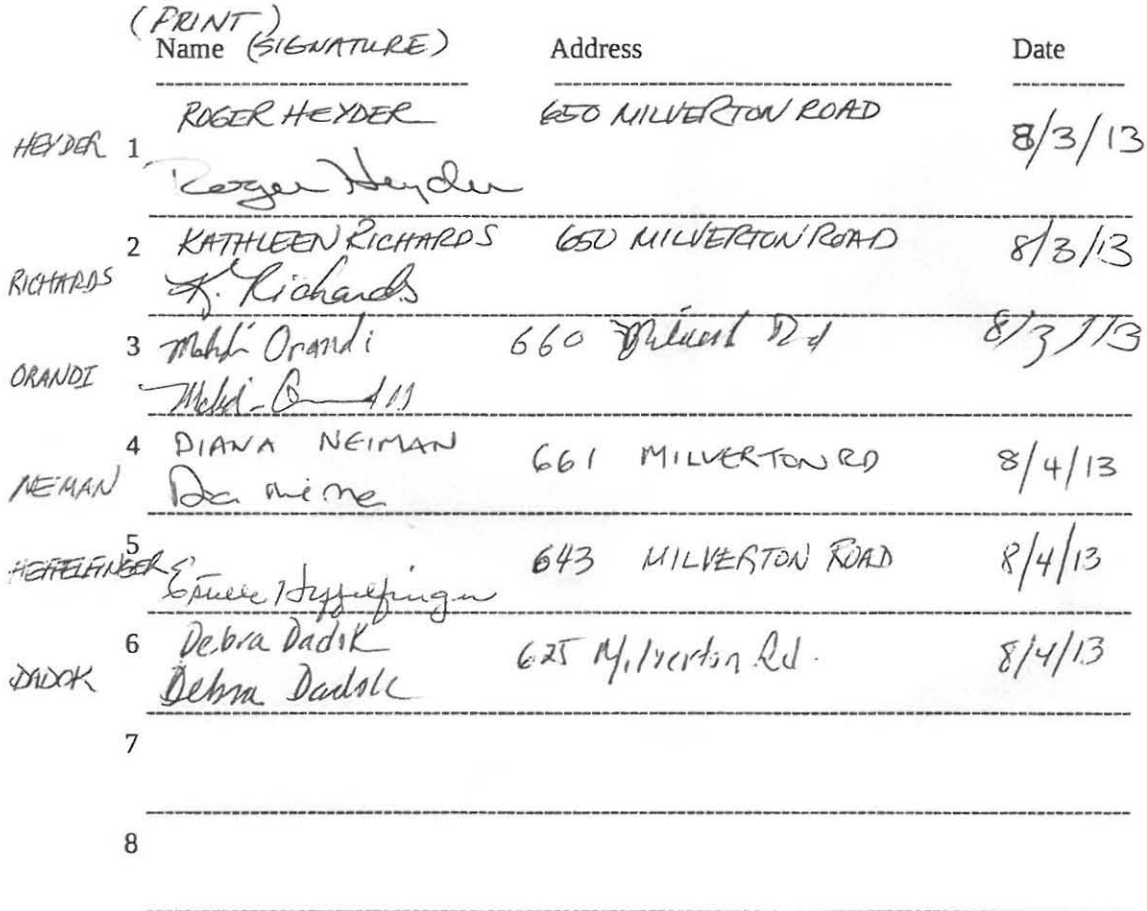 (PRINT)
Name (SIGNATURE) Address Date
ROGER HEYDER 650 MILVERTON ROAD
HEYDER 1 8/3/13
Roger Heyder
2 KATHLEEN RICHARDS 650 MILVERTON ROAD 8/3/13
RICHARDS K. Richards
3 Mahdi Orandi 660 Rd 8/3/13
ORANDI
4 DIANA NEIMAN 661 MILVERTON RD 8/4/13
NEIMAN
5 643 MILVERTON ROAD 8/4/13
HEFFELFINGER Heffelfinger
6 Debra Dadok 625 Milverton Rd. 8/4/13
DADOK Debra Dadok
7
8